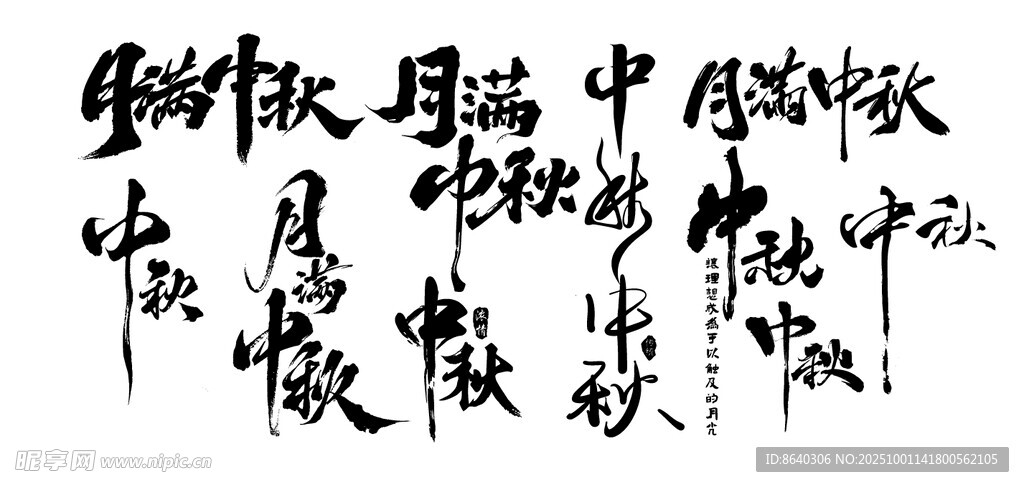 月满中秋
月满
中秋
中秋
月满中秋
中秋
月
满
中秋
中秋
浓情
中秋
中秋
让理想成为手以触及的月光
中秋
中秋
昵享网 www.nipic.cn
ID:8640306 NO:20251001141800562105